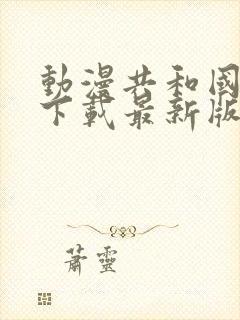 動漫共和國
下載最新版
蕭靈